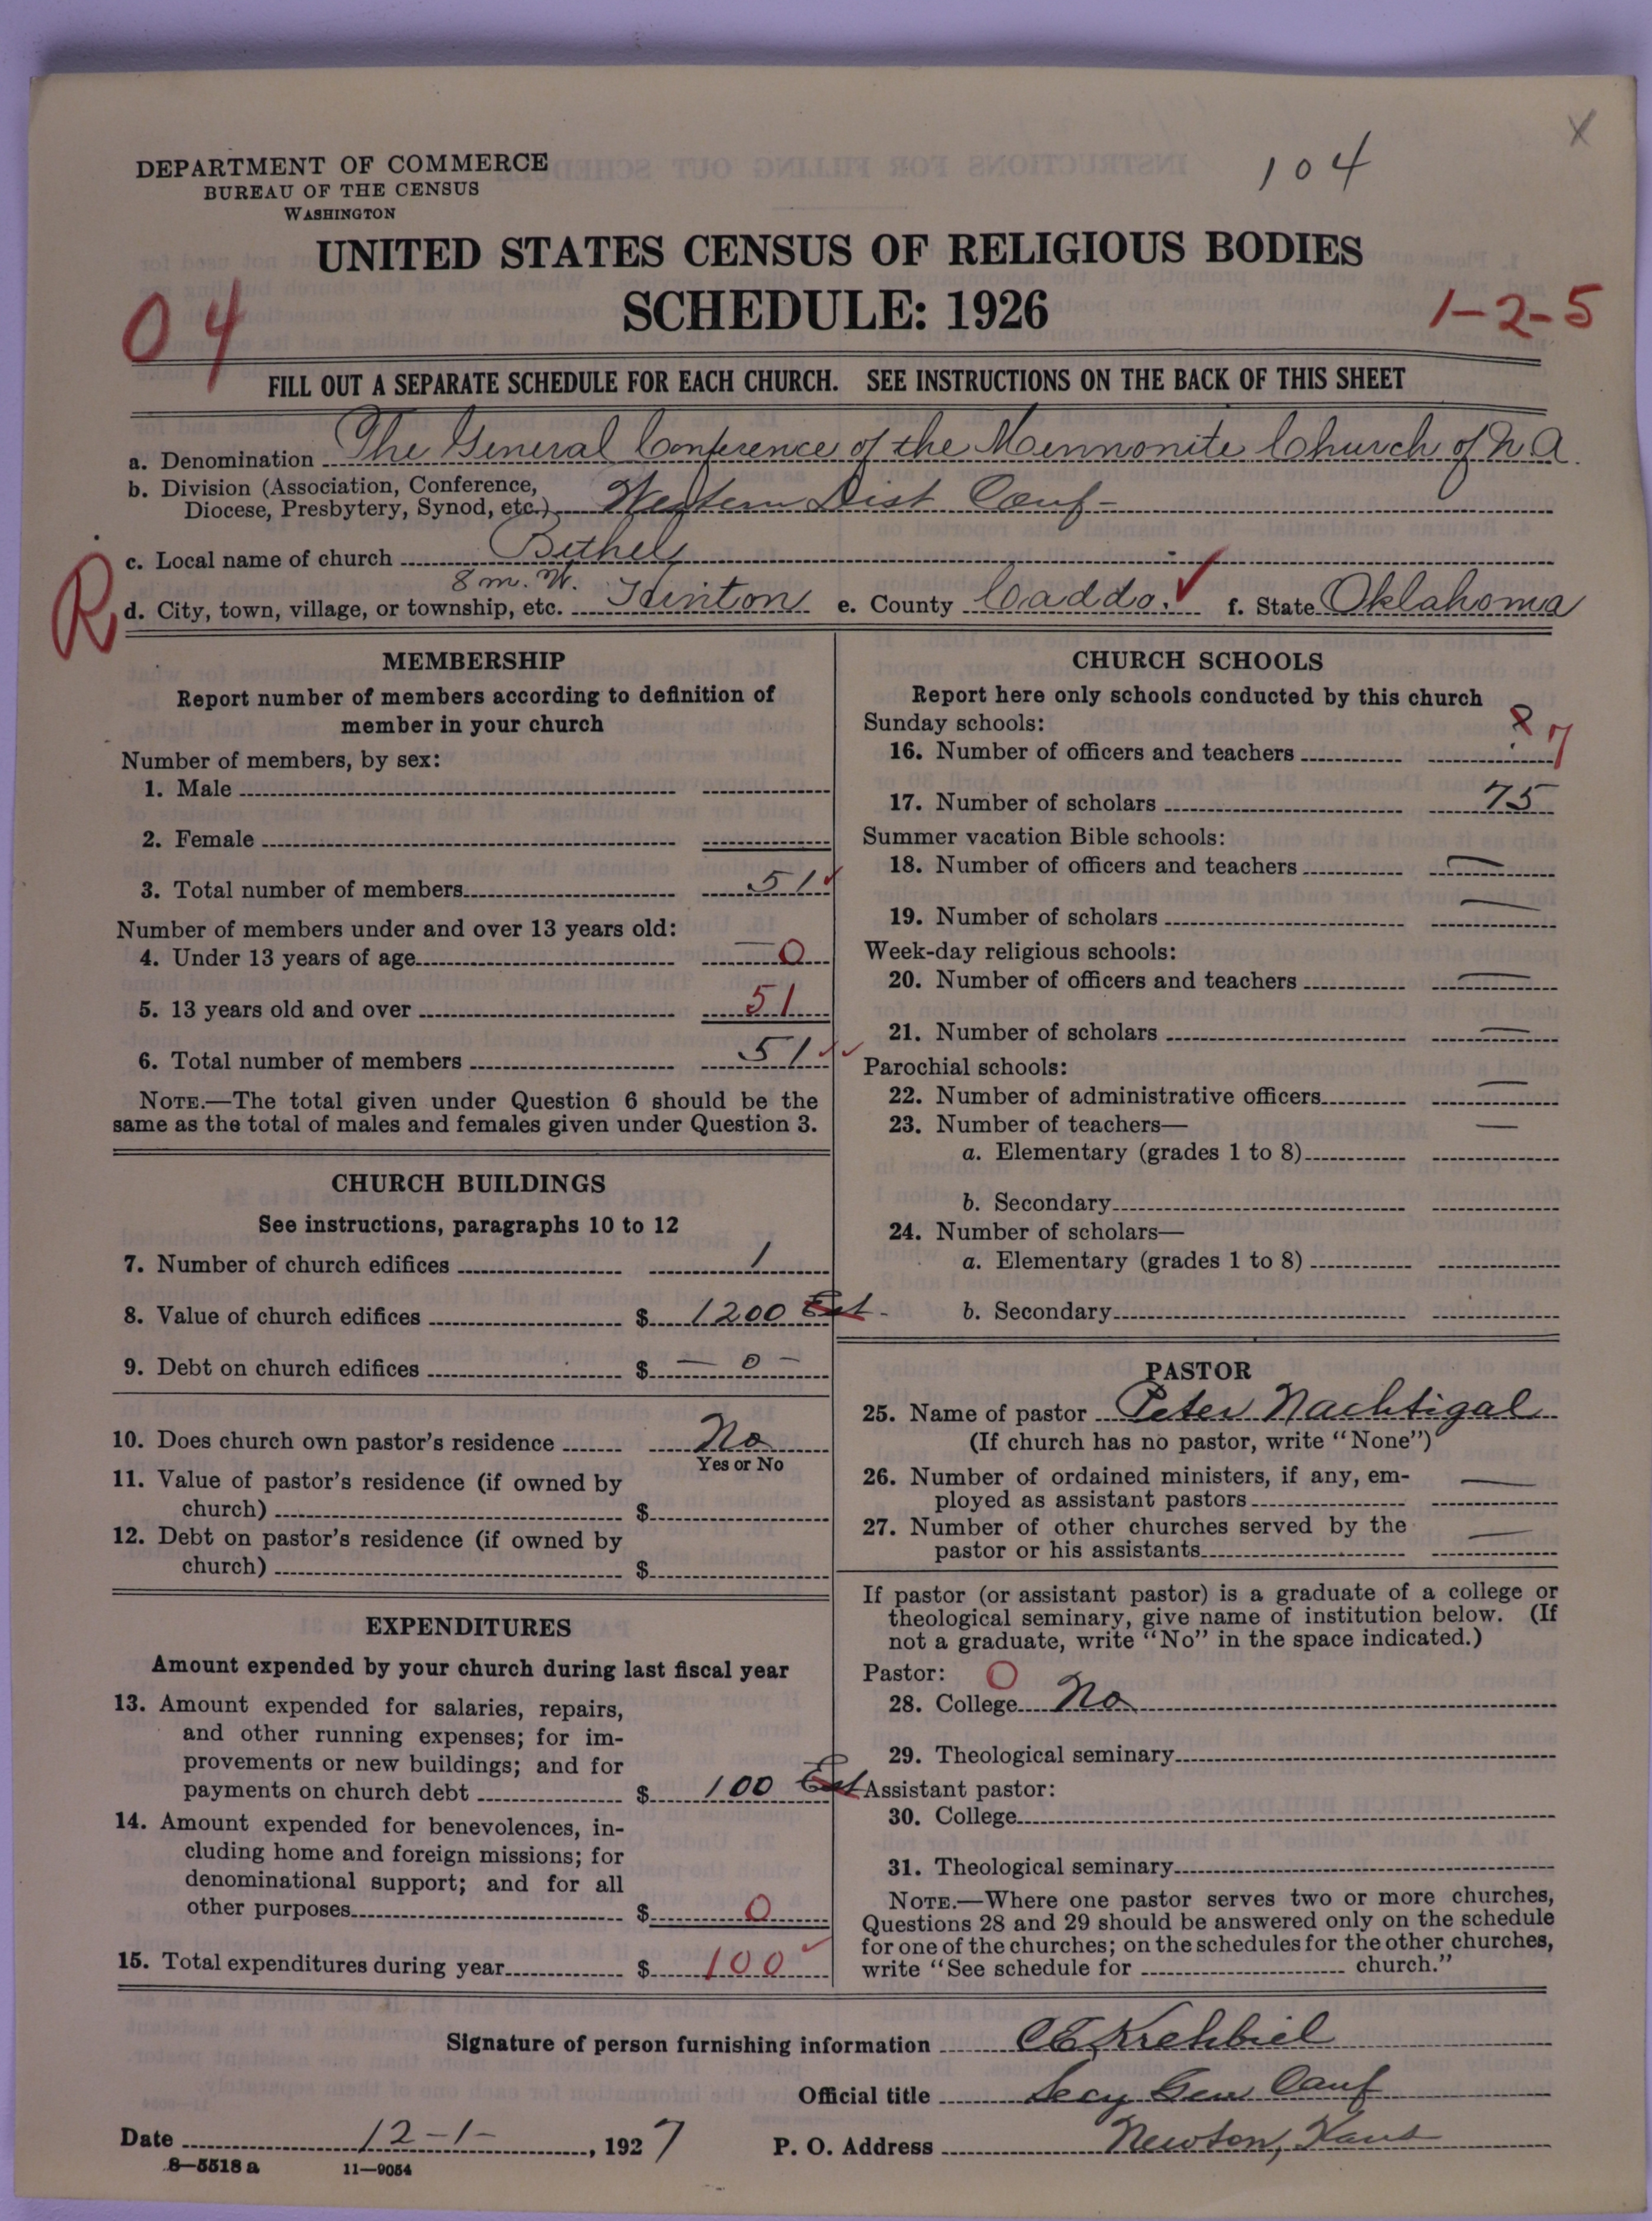 104
X
DEPARTMENT OF COMMERCE
BUREAU OF THE CENSUS
WASHINGTON
UNITED STATES CENSUS OF RELIGIOUS BODIES
SCHEDULE: 1926
04
1-2-5
FILL OUT A SEPARATE SCHEDULE FOR EACH CHURCH. SEE INSTRUCTIONS ON THE BACK OF THIS SHEET
a. Denomination The General Conference of the Mennonite Church of N A.
b. Division (Association, Conference,
Diocese, Presbytery, Synod, etc.) Western Dist Conf-
c. Local name of church Bethel
R
8 m. W.
d. City, town, village, or township, etc. Hinton e. County Caddo. ✓ f. State Oklahoma
MEMBERSHIP
Report number of members according to definition of
member in your church
Number of members, by sex:
1. Male
2. Female
3. Total number of members 51 ✓
Number of members under and over 13 years old:
4. Under 13 years of age — 0
5. 13 years old and over 51
6. Total number of members 51 ✓✓
NOTE.—The total given under Question 6 should be the
same as the total of males and females given under Question 3.
CHURCH BUILDINGS
See instructions, paragraphs 10 to 12
7. Number of church edifices 1
8. Value of church edifices $ 1200 Est-
9. Debt on church edifices $ — 0 —
10. Does church own pastor's residence No
Yes or No
11. Value of pastor's residence (if owned by
church) $
12. Debt on pastor's residence (if owned by
church) $
EXPENDITURES
Amount expended by your church during last fiscal year
13. Amount expended for salaries, repairs,
and other running expenses; for im-
provements or new buildings; and for
payments on church debt $ 100 Est
14. Amount expended for benevolences, in-
cluding home and foreign missions; for
denominational support; and for all
other purposes $ 0
15. Total expenditures during year $ 100 ✓
CHURCH SCHOOLS
Report here only schools conducted by this church
Sunday schools:
16. Number of officers and teachers 8 7
17. Number of scholars 75
Summer vacation Bible schools:
18. Number of officers and teachers —
19. Number of scholars —
Week-day religious schools:
20. Number of officers and teachers —
21. Number of scholars —
Parochial schools:
22. Number of administrative officers —
23. Number of teachers— —
a. Elementary (grades 1 to 8)
b. Secondary
24. Number of scholars—
a. Elementary (grades 1 to 8)
b. Secondary
PASTOR
25. Name of pastor Peter Nachtigal
(If church has no pastor, write "None")
26. Number of ordained ministers, if any, em-
ployed as assistant pastors —
27. Number of other churches served by the
pastor or his assistants —
If pastor (or assistant pastor) is a graduate of a college or
theological seminary, give name of institution below. (If
not a graduate, write "No" in the space indicated.)
Pastor: O
28. College No
29. Theological seminary
Assistant pastor:
30. College
31. Theological seminary
NOTE.—Where one pastor serves two or more churches,
Questions 28 and 29 should be answered only on the schedule
for one of the churches; on the schedules for the other churches,
write "See schedule for church."
Signature of person furnishing information CE Krehbiel
Official title Secy Gen Conf
Date 12-1-, 1927 P. O. Address Newton, Kans
8-5518 a 11-9054